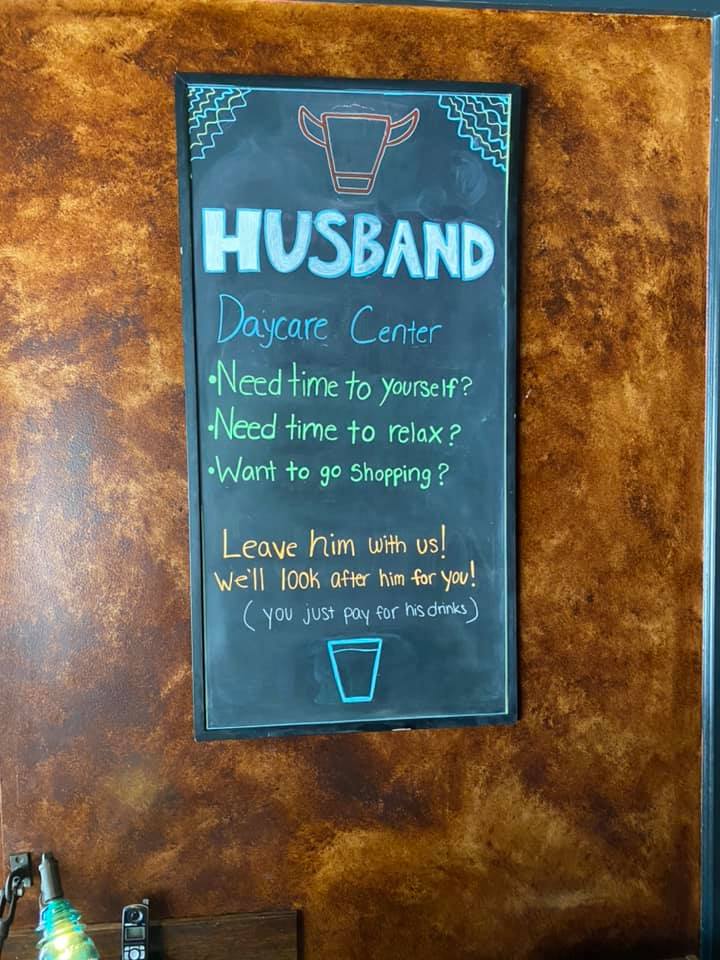 HUSBAND
Daycare Center
•Need time to yourself?
•Need time to relax?
•Want to go shopping?
Leave him with us!
We'll look after him for you!
(you just pay for his drinks)